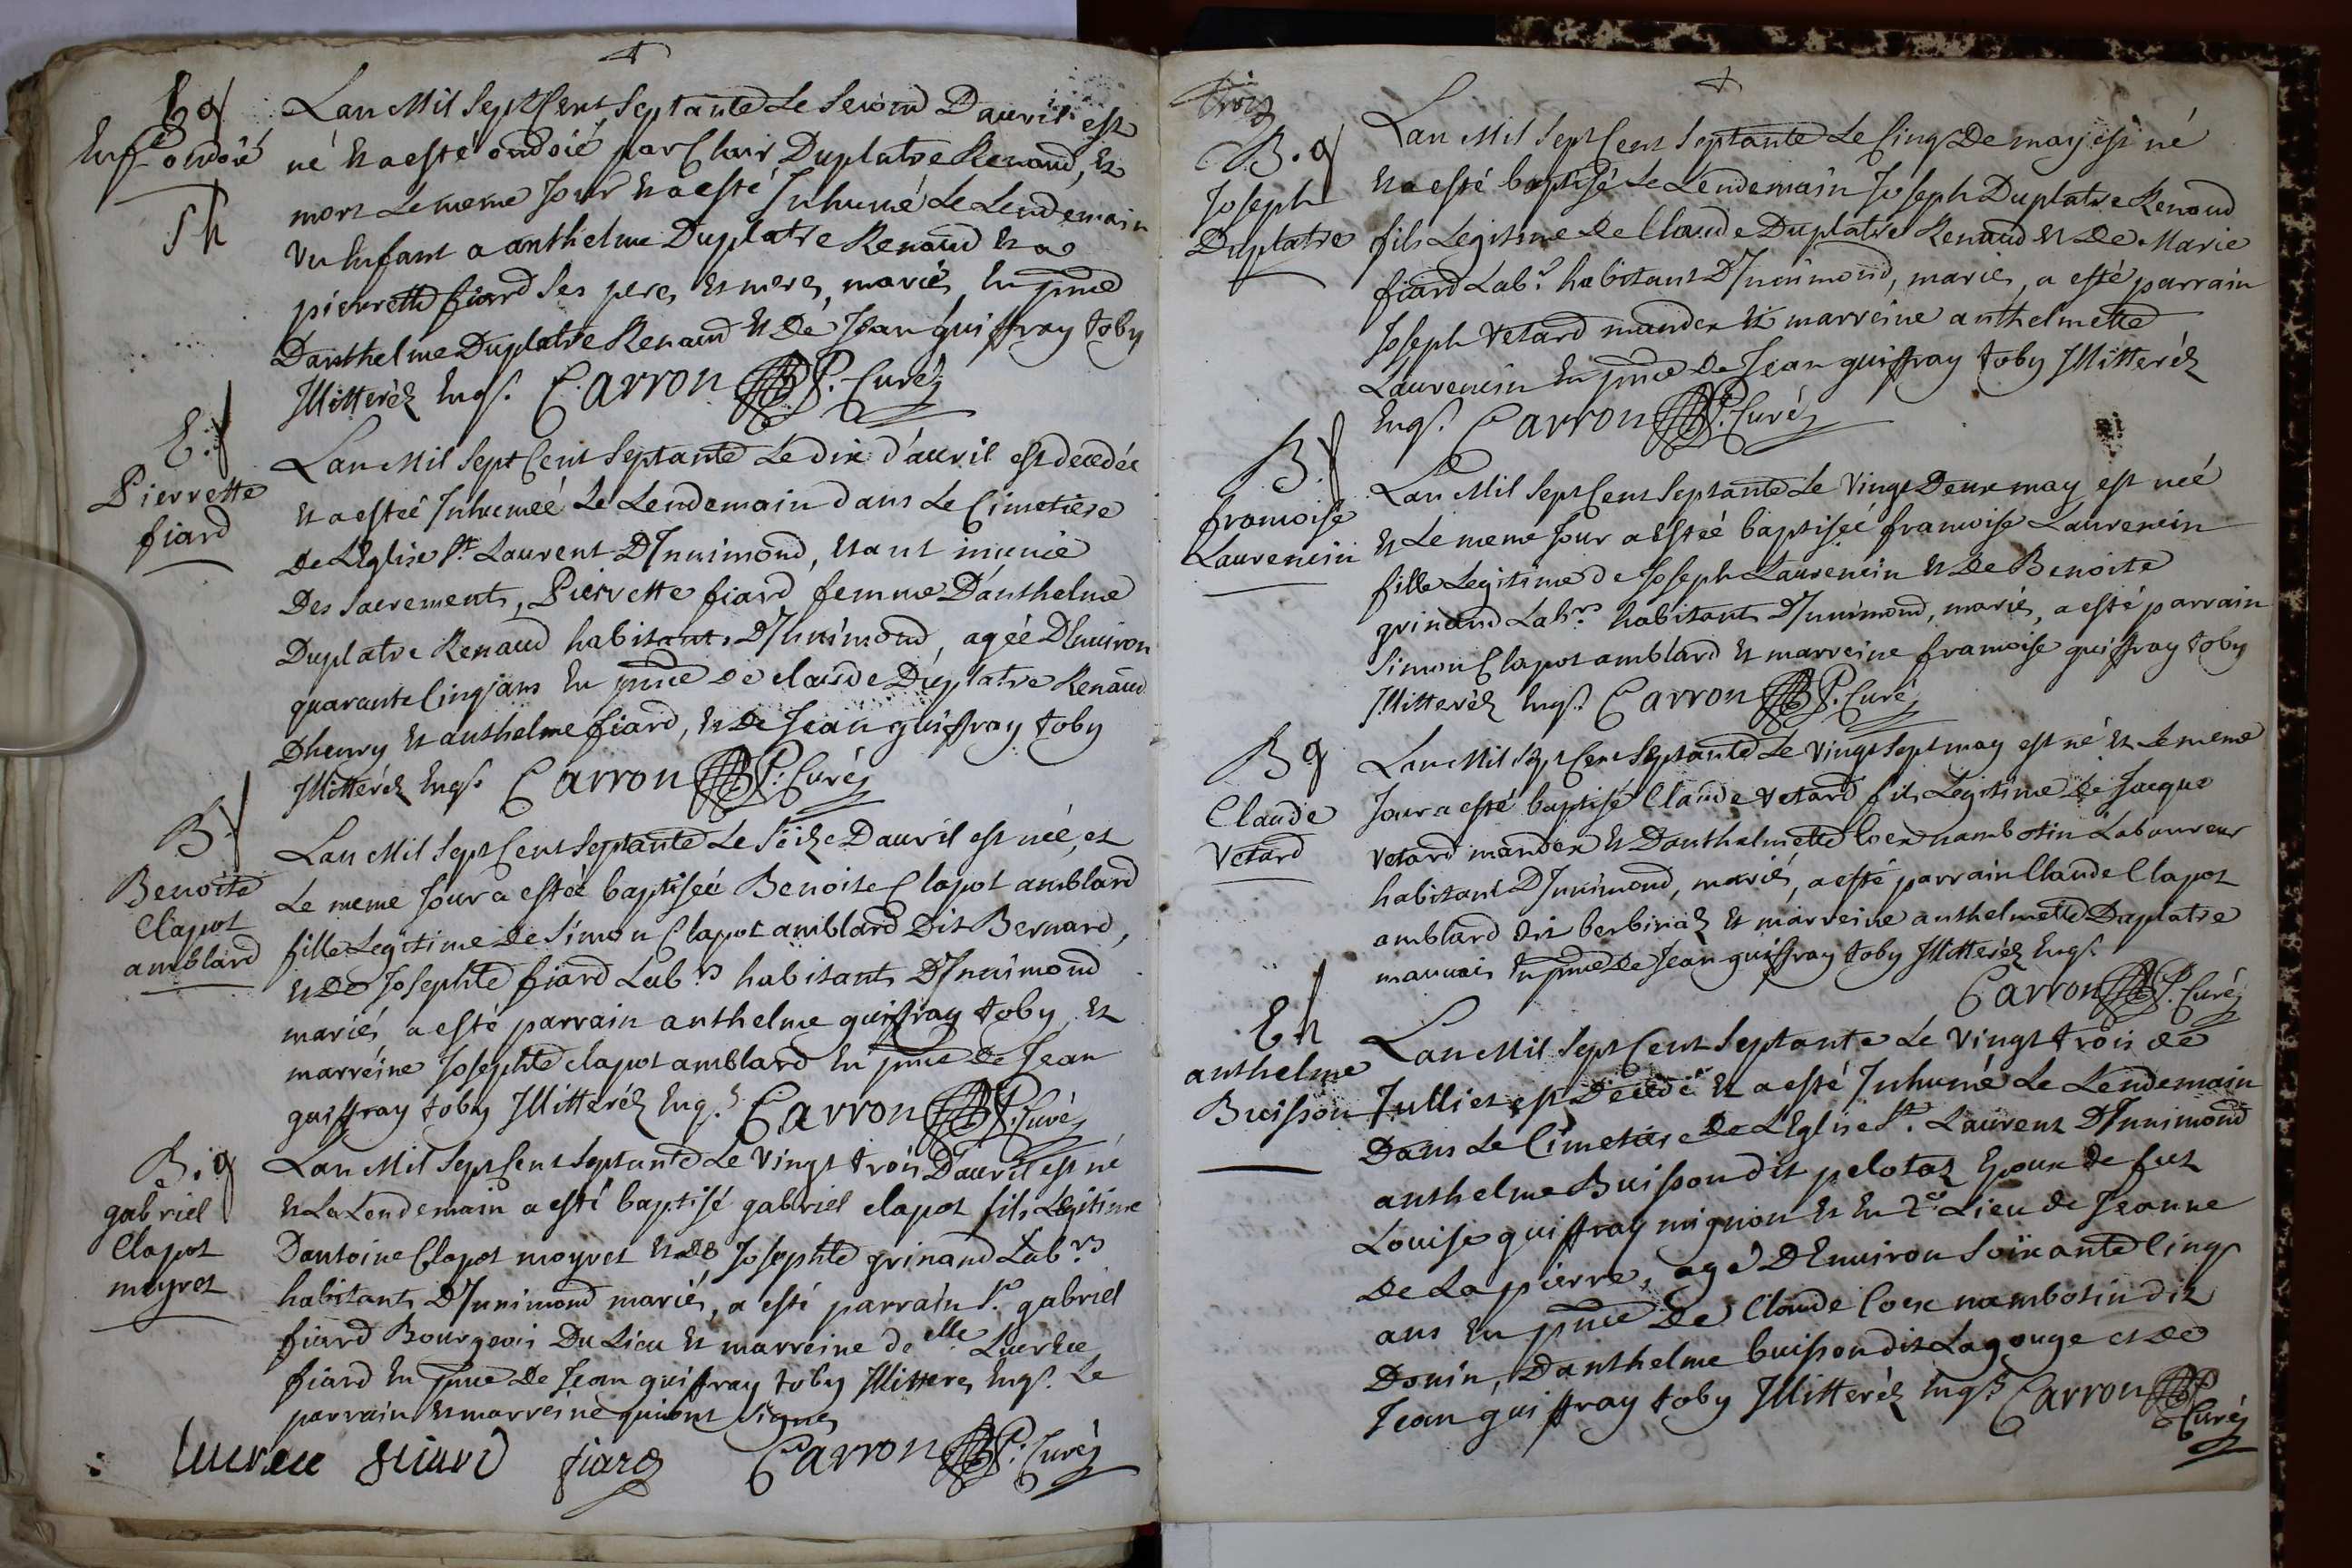 E g
Enft ondoié
Sh
Lan Mil Sept Cent Septante Le Second Dauril est
né Et a esté ondoié par Clair Duplatre Renaud, Et
mort Le meme Jour Et a esté Inhumé Le Lendemain
Vn Enfant a anthelme Duplatre Renaud Et a
pierrette fiard Ses peres Et meres, mariés, En pnce
Danthelme Duplatre Renaud Et De Jean guiffray toby
Illitteréz Enqs. Carron P. Curéz
E. f
Pierrette
fiard
Lan Mil Sept Cent Septante Le dix d'auril est decedée
Et a estéé Inhuméé Le Lendemain dans Le Cimetiere
de LEglise St. Laurent DInnimond, Etant munie
Des Sacrements, Pierrette fiard femme Danthelme
Duplatre Renaud habitants DInnimond, agéé DEnuiron
quarante Cinq ans En pnce de claude Duplatre Renaud
Dhenry Et anthelme fiard, Et De Jean guiffray toby
Illitteréz Enqs Carron P. Curéz
B. f
Benoite
Clapot
amblard
Lan Mil Sept Cent Septante Le Séize Dauril est néé, et
Le meme Jour a estéé baptiséé Benoite Clapot amblard
fille Legitime de Simon Clapot amblard Dit Bernard,
Et De Josephte fiard Labrs habitants DInnimond
mariés, a esté parrain anthelme guiffray toby, Et
marréine Josephte clapot amblard En pnce de Jean
guiffray toby Illitteréz Enqs. Carron P. Curéz
B. g
gabriel
Clapot
moyret
Lan Mil Sept Cent Septante Le Vingt trois Dauril est né
Et Le Lendemain a esté baptisé gabriel clapot fils Legitime
Dantoine Clapot moyret Et De Josephte grinand Labrs
habitants DInnimond mariés, a esté parrain Sr. gabriel
fiard Bourgeois Du Lieu Et marreine delle Lucrece
fiard En pnce De Jean guiffray toby Illitteres Enqs. Le
parrain Et marreine qui ont Signes
lucrece fiard fiard Carron P. Curéz
trois
B. g
Joseph
Duplatre
Lan Mil Sept Cent Septante Le Cinq De may est né
Et a esté baptisé Le Lendemain Joseph Duplatre Renaud
fils Legitime de Claude Duplatre Renaud Et De Marie
fiard Labr. habitant DInnimond, mariés, a esté parrain
Joseph Vetard mander Et marreine anthelmette
Laurencin En pnce De Jean guiffray toby Illitteréz
Enqs. Carron P. Curéz
B. f
francoise
Laurencin
Lan Mil Sept Cent Septante Le Vingt Deux may est néé
Et Le meme Jour a Estéé baptiséé francoise Laurencin
fille Legitime de Joseph Laurencin Et De Benoite
grinand Labrs. habitants DInnimond, mariés, a esté parrain
Simon Clapot amblard Et marreine francoise guiffray toby
Illitteréz Enqs. Carron P. Curé
B g
Claude
Vetard
Lan Mil Sept Cent Septante Le Vingt Sept may est né Et Le meme
Jour a esté baptisé Claude Vetard fils Legitime de Jacque
Vetard mander Et Danthelmette Coex nambotin Laboureur
habitant DInnimond, mariés, a esté parrain Claude Clapot
amblard dit berbinaz Et marreine anthelmette Duplatre
mauuais En pnce De Jean guiffray toby Illitteréz Enqs.
Carron P. Curéz
Eh
anthelme
Buisson
Lan Mil Sept Cent Septante Le Vingt trois de
Julliet est Decedé Et a esté Inhumé Le Lendemain
Dans Le Cimetiere De LEglise St. Laurent DInnimond
anthelme Buisson dit pelotaz Epoux de fut
Louise guiffray mignion Et En 2e Lieu de Jeanne
De Lapierre, agé DEnuiron Soixante Cinq
ans En pnce De Claude Coex nambotin dit
Donin, Danthelme buisson dit Lagouge et De
Jean guiffray toby Illitteréz Enqs. Carron P.
Curéz